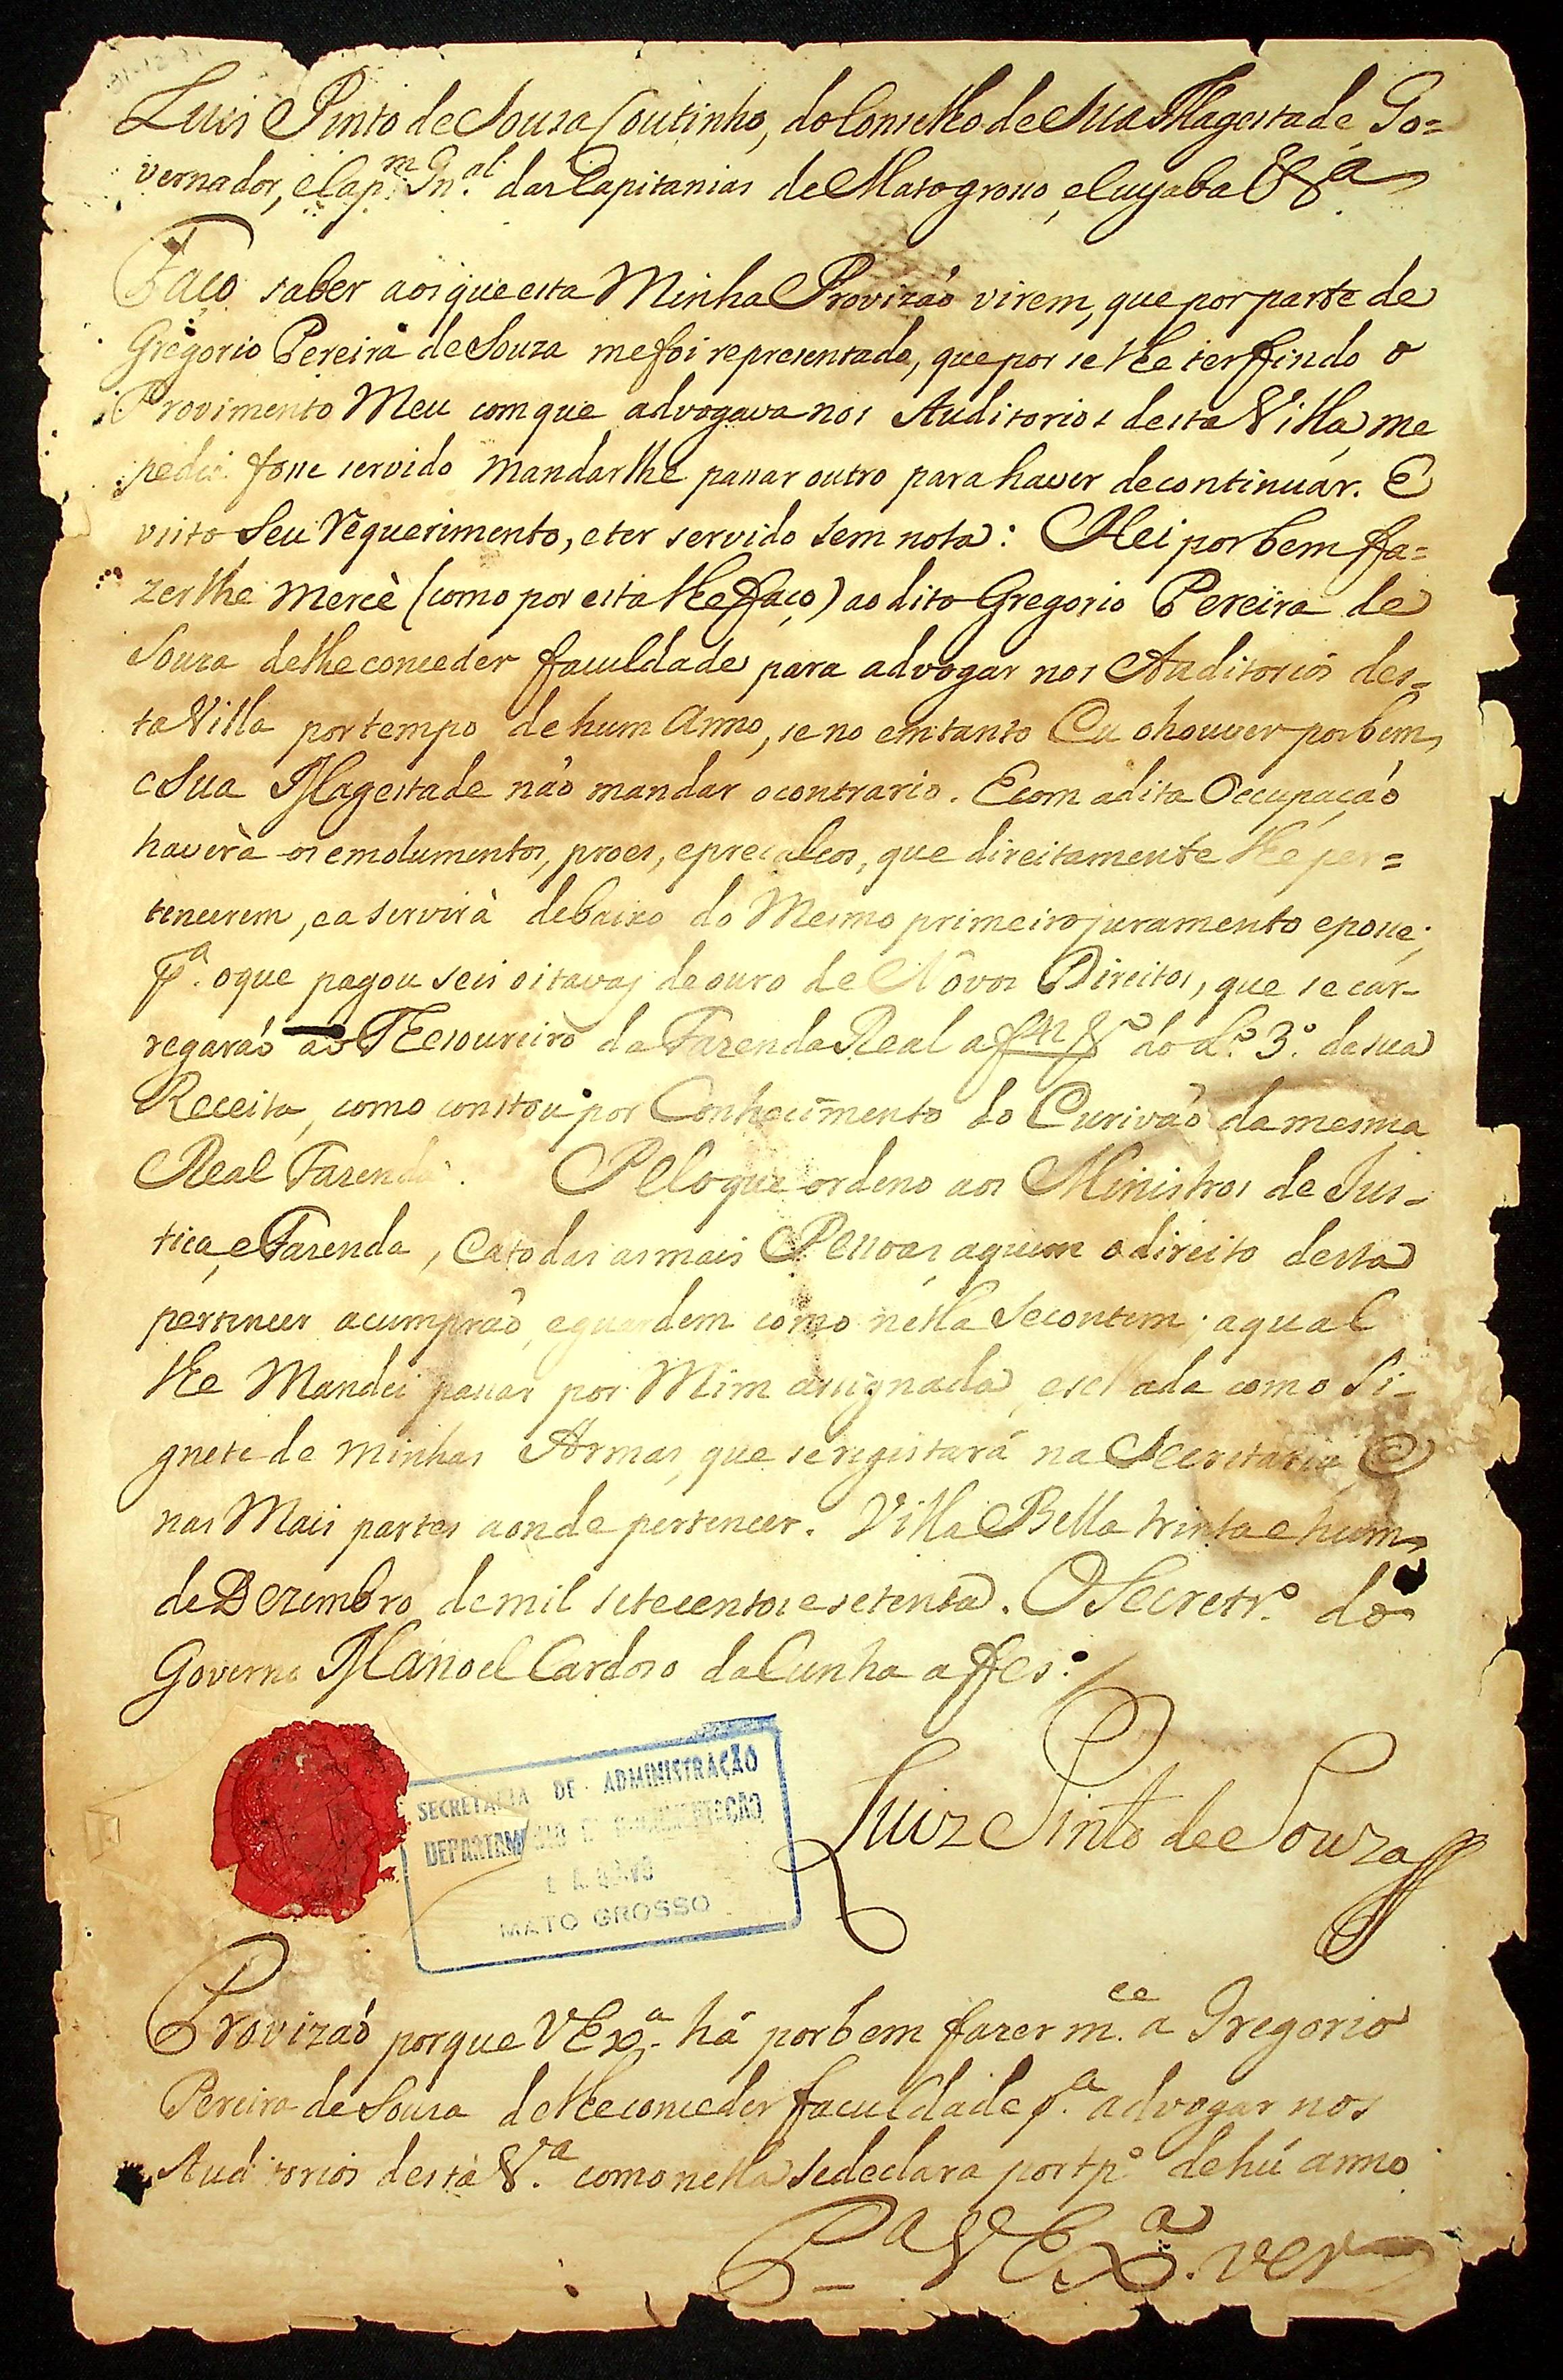 Luis Pinto de Sousa Coutinho, do Conselho de Sua Magestade, Go=
vernador, e Cap.m Gn.al das Capitanias de Matogrosso, e Cuyaba &.a
Faço saber aos que esta Minha Provizáo virem, que por parte de
Gregorio Pereira de Souza me foi representado, que por se lhe ter findo o
Provimento Meu com que advogava nos Auditorios desta Villa, me
pedia fosse servido mandarlhe passar outro para haver de continuár. E
visto Seu requerimento, e ter servido sem nota: Hei por bem fa=
zerlhe mercè (como por esta lhe faço) ao dito Gregorio Pereira de
Sousa de lhe conceder faculdade para advogar nos Auditorios des-
ta Villa por tempo de hum Anno, se no emtanto Eu o houver por bem,
e Sua Magestade náo mandar o contrario. E com a dita Occupaçáo
haverà os emolumentos, proes, e precalços, que direitamente lhe per=
tencerem, e a servirà debaixo do Mesmo primeiro juramento e posse;
p.a o que pagou seis oitavas de ouro de Nôvos Direitos, que se car-
regaráo ao Thesoureiro da Fazenda Real a do L.o 3.o da sua
Receita, como constou por Conhecimento do Escriváo da mesma
Real Fazenda. Pelo que ordeno aos Ministros de Jus-
tiça, e Fazenda, e a todas as mais Pessoas, a quem o direito desta
pertencer a cumpráo, e guardem como nella se contem; a qual
lhe Mandei passar por Mim assignada, e sellada com o Si-
gnete de minhas Armas, que se registará na Secretaria, e
nas Mais partes aonde pertencer. Villa Bella trinta e hum
de Dezembro de mil setecentos e setenta. O Secretr.o do
Governo Manoel Cardoso da Cunha a fes.
Luiz Pinto de Souza
SECRETARIA DE ADMINISTRAÇÃO
DEPARTAMENTO DE DOCUMENTAÇÃO
E ARQUIVO
MATO GROSSO
Provizáo porque VEx.a há por bem fazer m.ce a Gregorio
Pereira de Sousa de lhe conceder faculdade p.a advogar nos
Auditorios desta V.a como nella se declara por tp.o de hú anno
P.a VEx.a ver